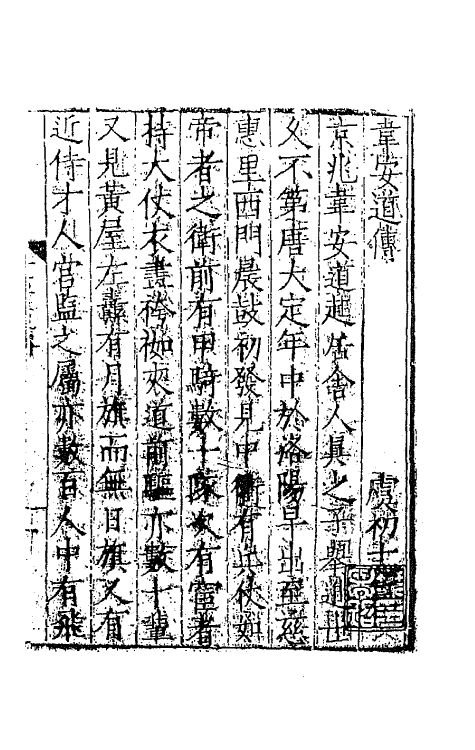 韋安道傳
虞初志
京兆韋安道起居舍人真之子舉進士
久不第唐大定年中於洛陽早出至慈
惠里西門晨鼓初發見中衢有兵仗如
帝者之衛前有甲騎數十隊次有宦者
持大仗衣畫袴袽夾道前驅亦數十輩
又見黃屋左纛有月旗而無日旗又有
近侍才人宮監之屬亦數百人中有飛